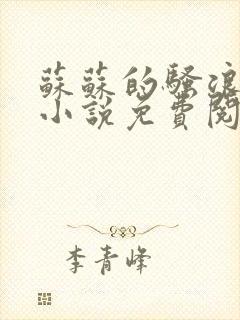 蘇蘇的騷浪
小說免費閱
李青峰